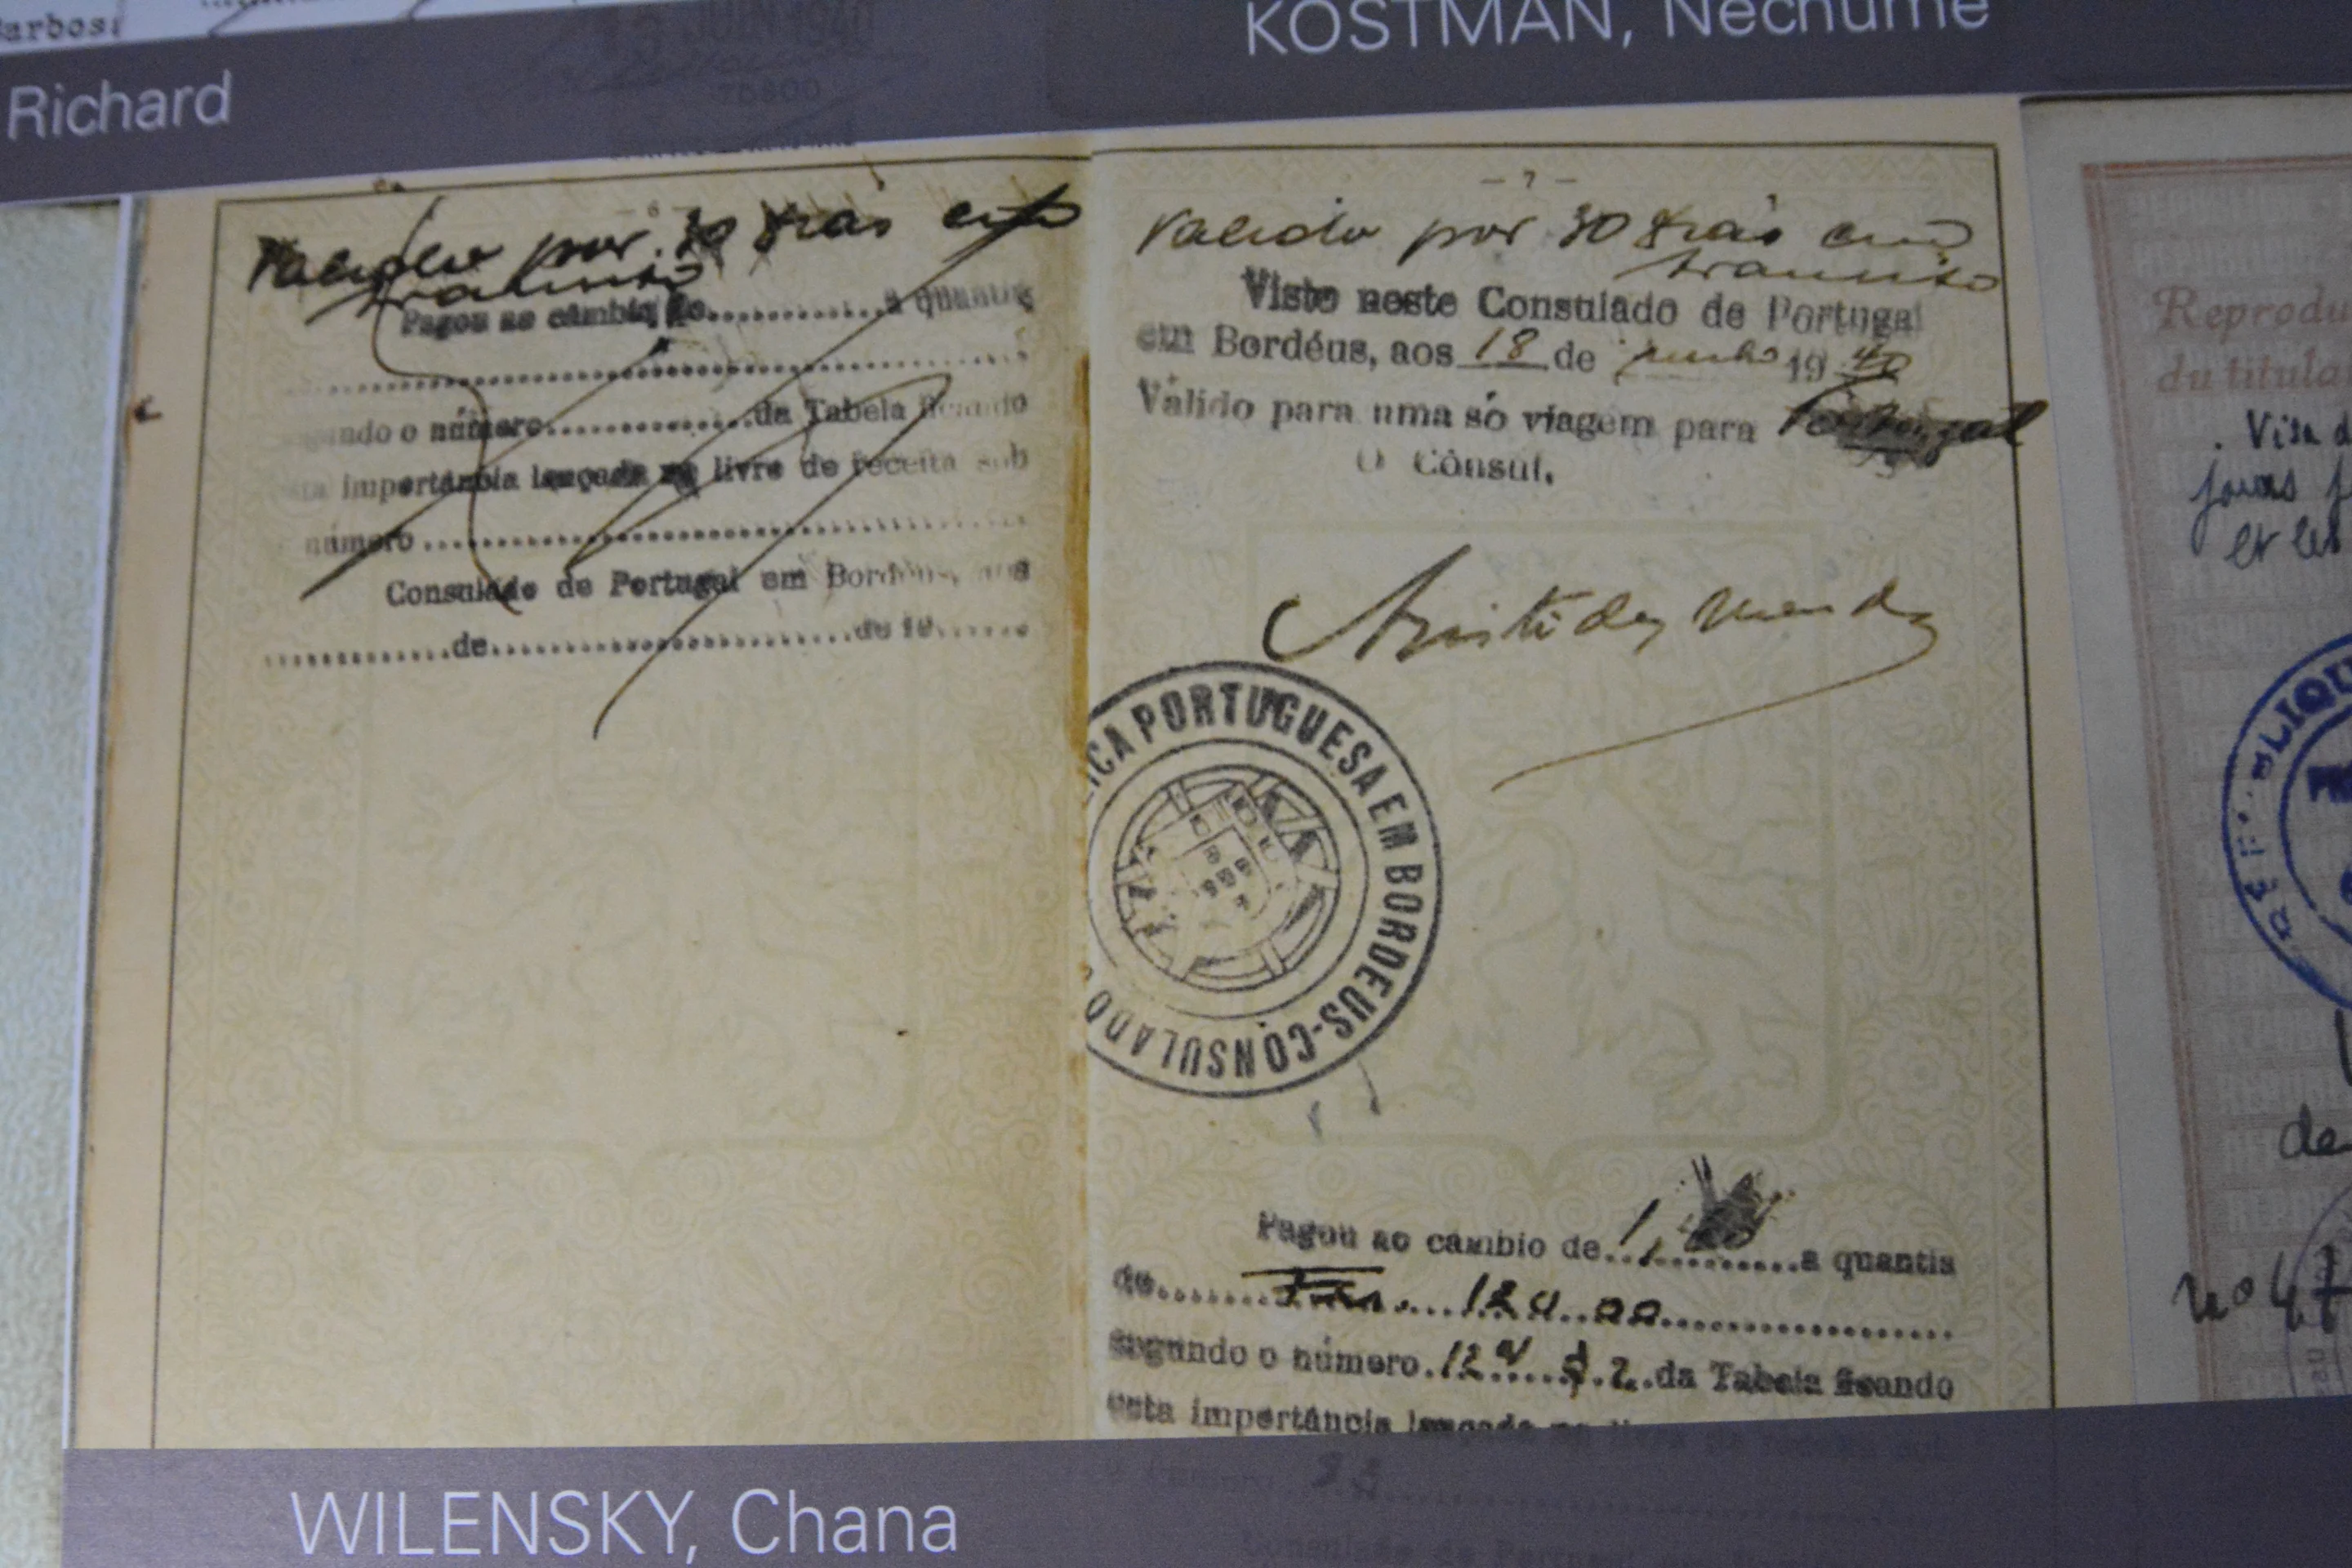 KOSTMAN, Nechume
Richard
13 JUIN 1940
- 6 -
Valido por 30 dias em
transito
Pagou ao câmbio de..............a quantia
número..............da Tabela ficando
importância lançada no livro de receita sob
número
Consulado de Portugal em Bordéus, aos
.............de.........................de 19.......
- 7 -
Valido por 30 dias em
transito
Visto neste Consulado de Portugal
em Bordéus, aos 18 de junho 19 40
Válido para uma só viagem para Portugal
O Cônsul,
Aristides Mendes
PORTUGUESA EM BORDEUS-CONSULADO
Pagou ao câmbio de.............a quantia
de
segundo o número da Tabela ficando
esta importância lançada
WILENSKY, Chana
Reprodu
du titula
Visa d
jours
et les
de
nº 47